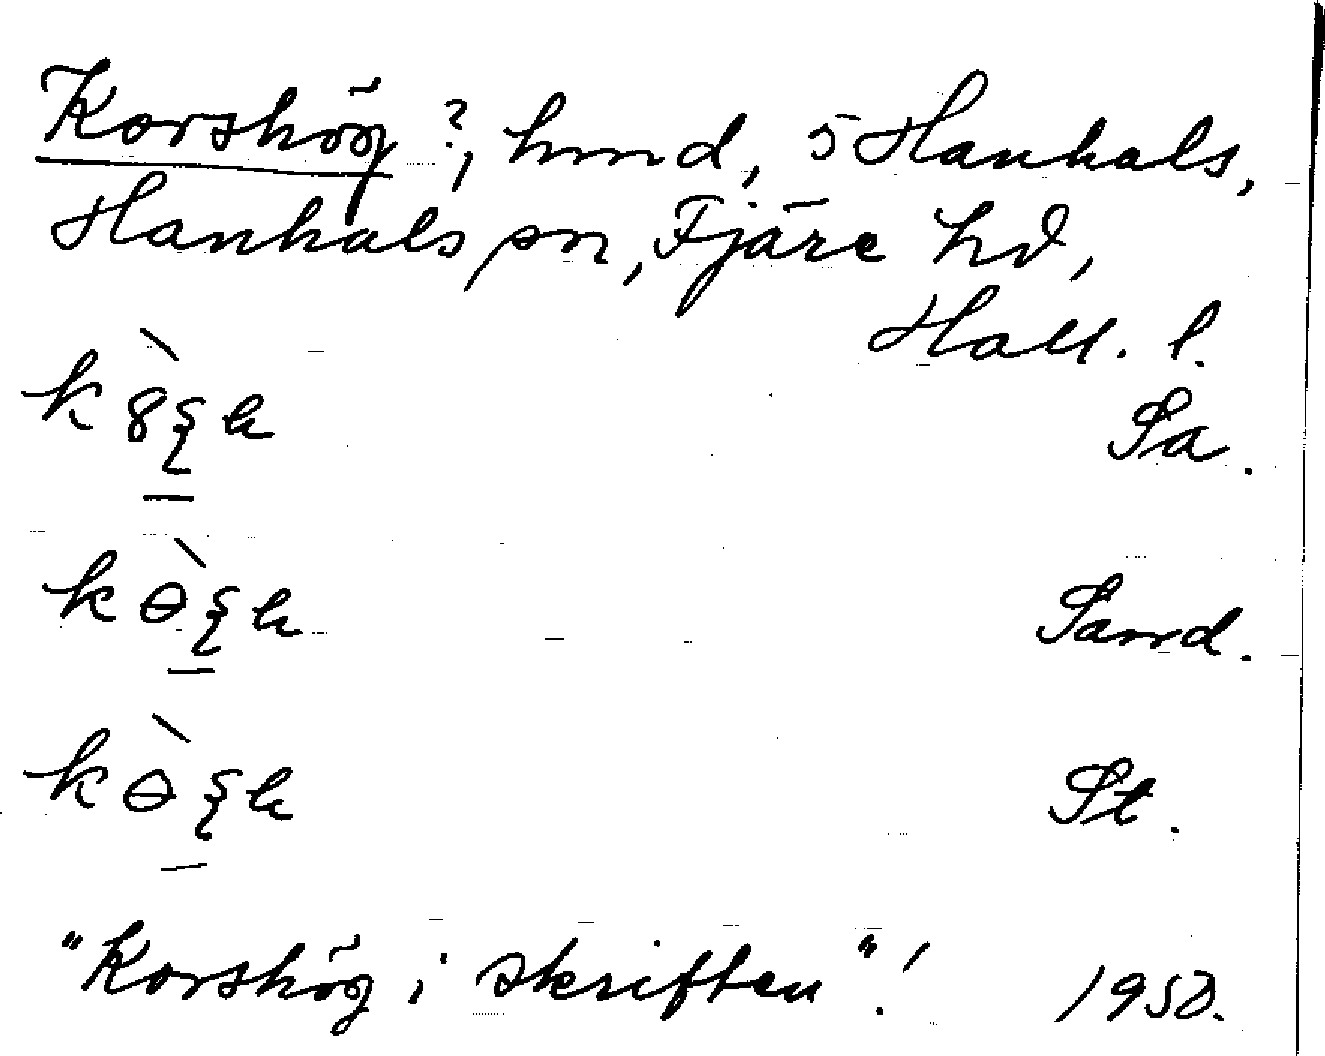 Korshög?, hmd, 5 Hanhals,
Hanhals sn, Fjäre hd,
Hall. l.
Sa.
Sand.
St.
"Korshög i skriften"! 1950.